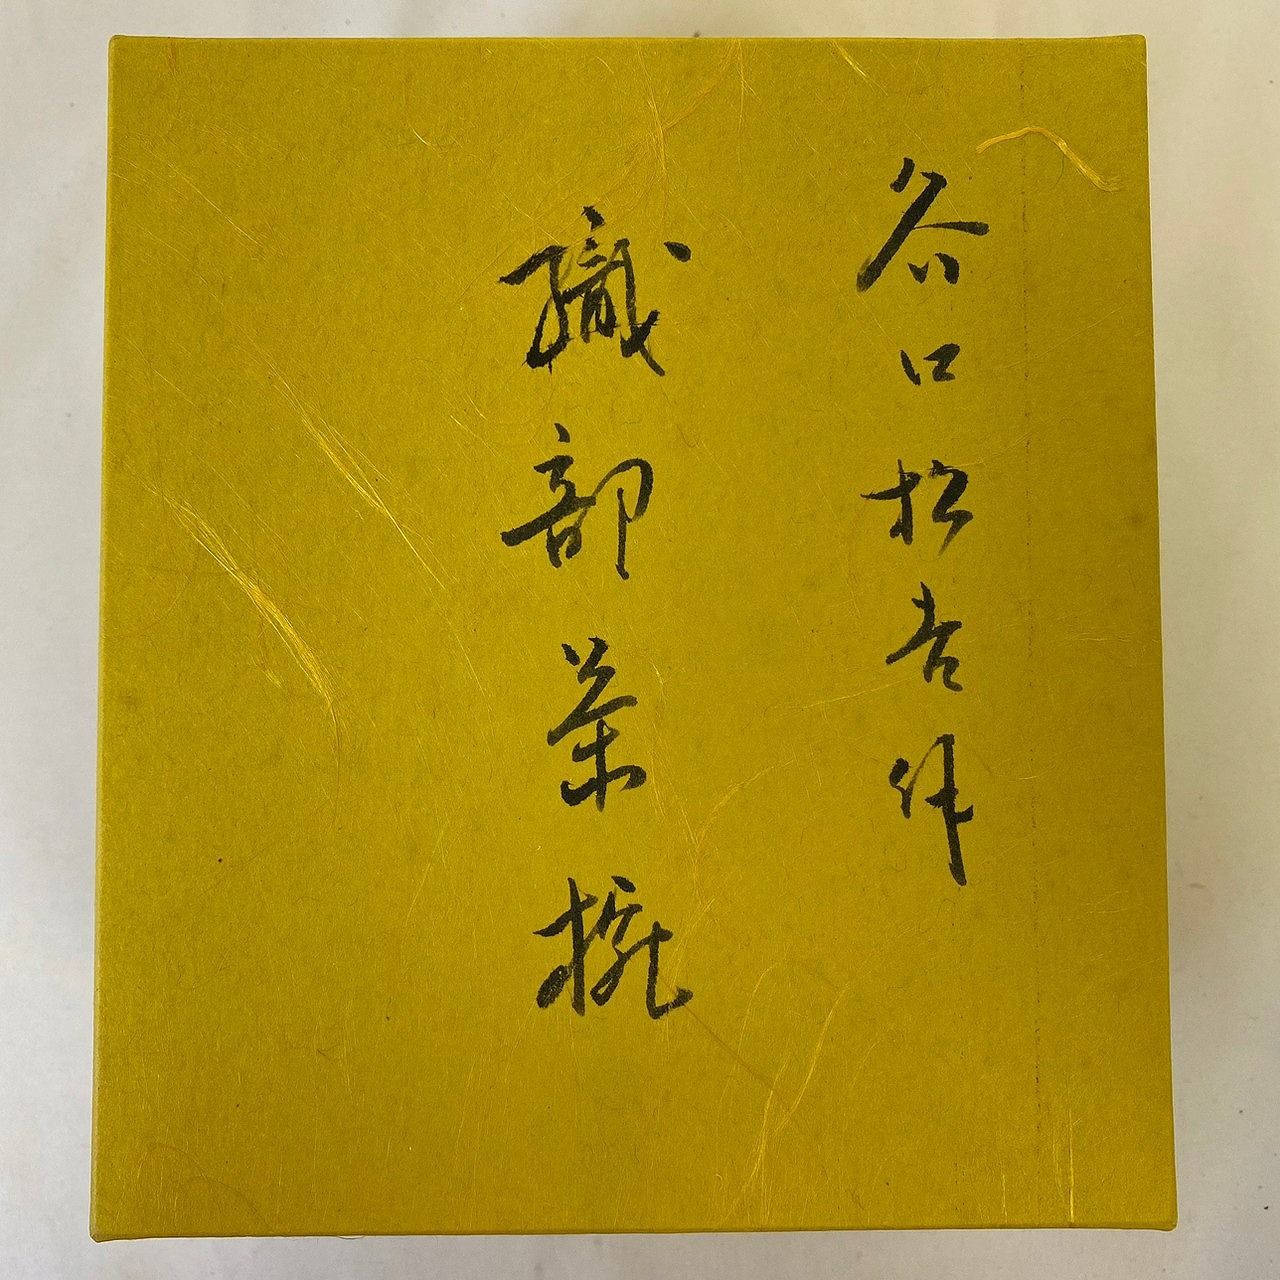 谷口松吉作
織部茶椀